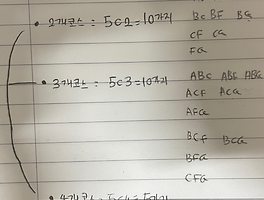 • 2개코스 : 5C2 = 10가지 BC BF BG
CF CG
FG
• 3개코스 : 5C3 = 10가지 ABC ABF ABG
ACF ACG
AFG
BCF BCG
BFG
CFG
• 4개코스 : 5C4 = 5가지